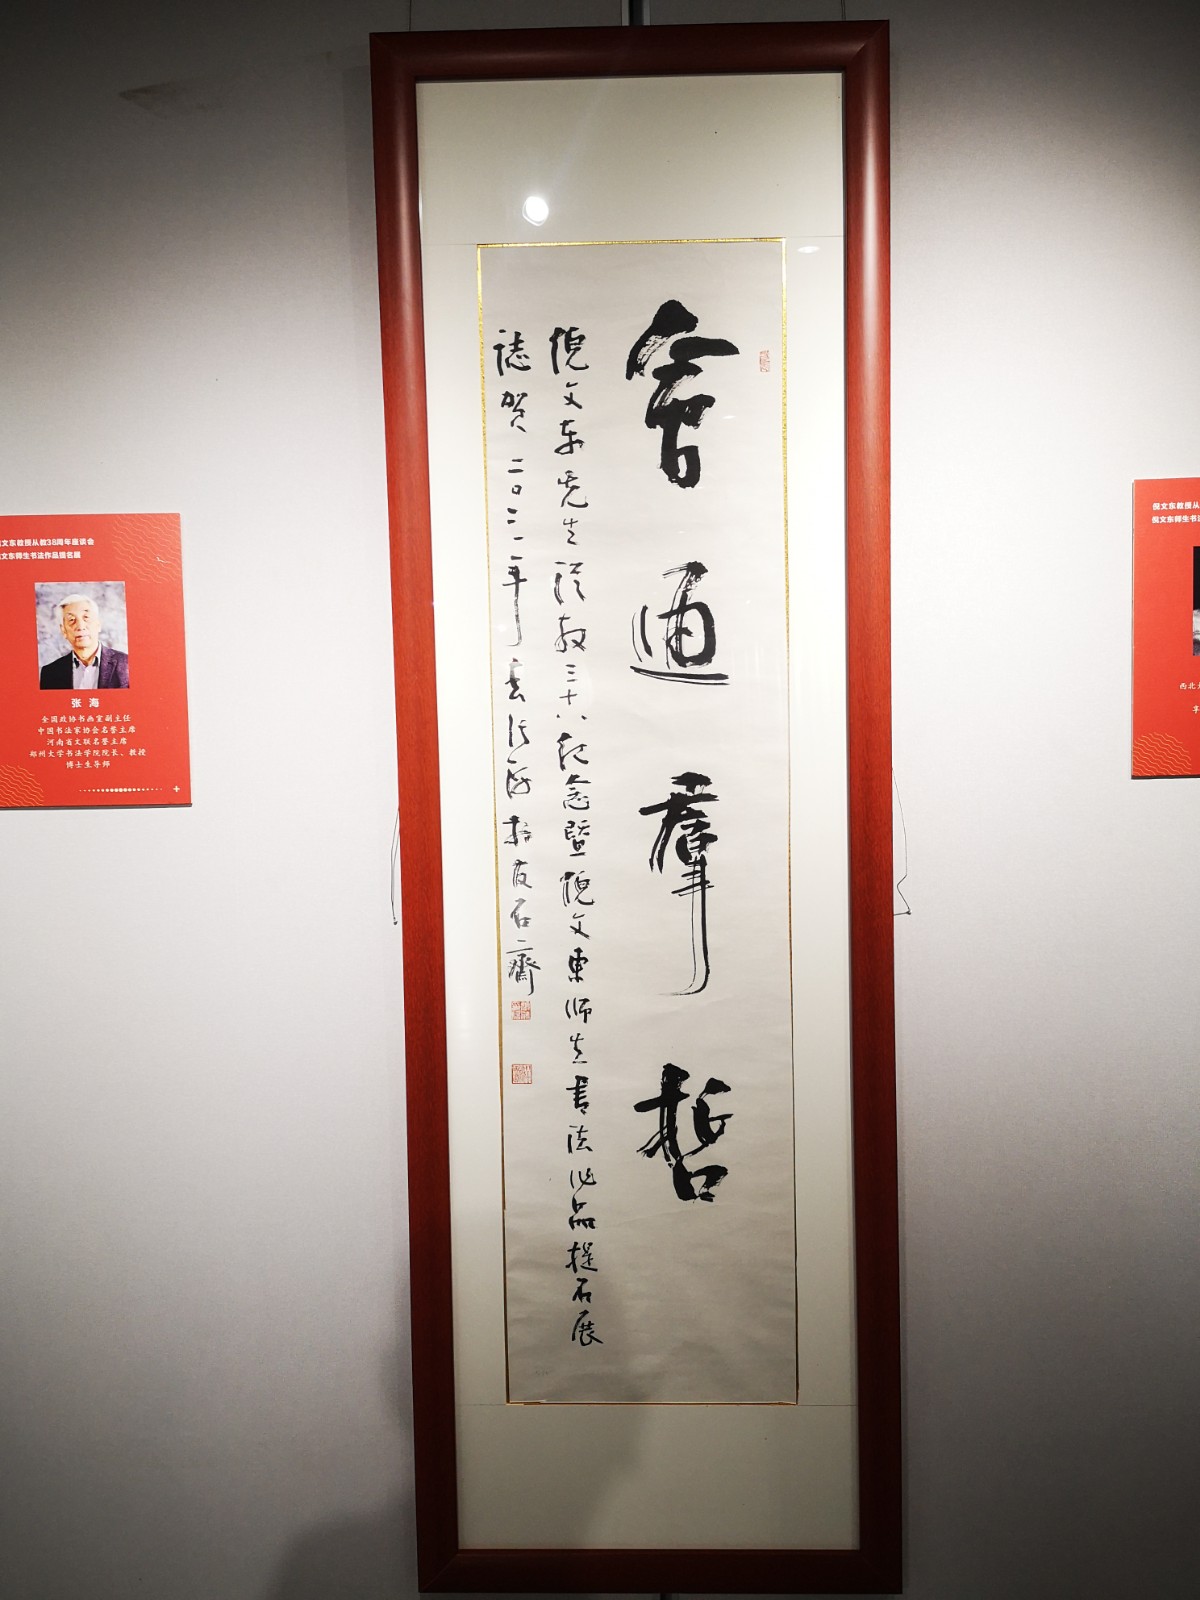 會通羣哲
倪文东先生從教三十八紀念暨倪文東師生書法作品提名展
誌賀二〇二一年 張海於友石齋
文东教授从教38周年座谈会
文东师生书法作品提名展
张 海
全国政协书画室副主任
中国书法家协会名誉主席
河南省文联名誉主席
郑州大学书法学院院长、教授
博士生导师
倪文东教授从
倪文东师生书法
西北